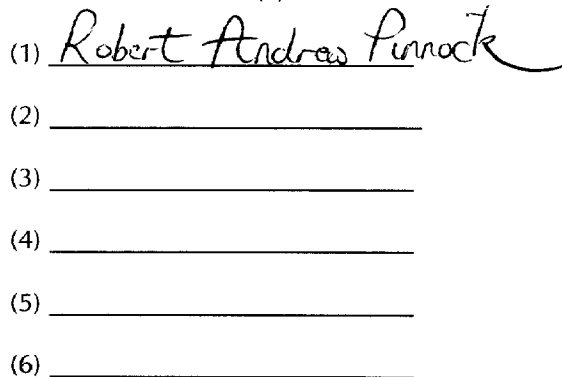 (1) Robert Andrew Pinnock
(2)
(3)
(4)
(5)
(6)